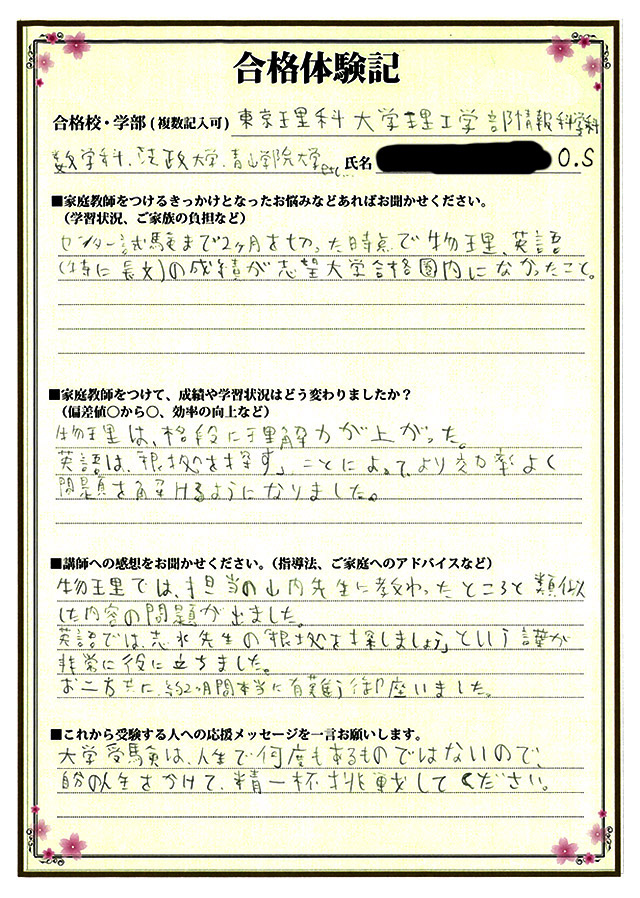 合格体験記
合格校・学部(複数記入可) 東京理科大学理工学部情報科学科
数学科、法政大学、青山学院大学etc… 氏名 O.S
■家庭教師をつけるきっかけとなったお悩みなどあればお聞かせください。
（学習状況、ご家族の負担など）
センター試験まで2ヶ月を切った時点で物理、英語
(特に長文)の成績が志望大学合格圏内になかったこと。
■家庭教師をつけて、成績や学習状況はどう変わりましたか？
（偏差値○から○、効率の向上など）
物理は、格段に理解力が上がった。
英語は、「根拠を探す」ことによって、より効率よく
問題を解けるようになりました。
■講師への感想をお聞かせください。（指導法、ご家庭へのアドバイスなど）
物理では、担当の山内先生に教わったところと類似
した内容の問題が出ました。
英語では、志水先生の「根拠を探しましょう」という言葉が
非常に役に立ちました。
お二方共に、約2ヶ月間本当に有難う御座いました。
■これから受験する人への応援メッセージを一言お願いします。
大学受験は、人生で何度もあるものではないので、
自分の人生をかけて、精一杯挑戦してください。